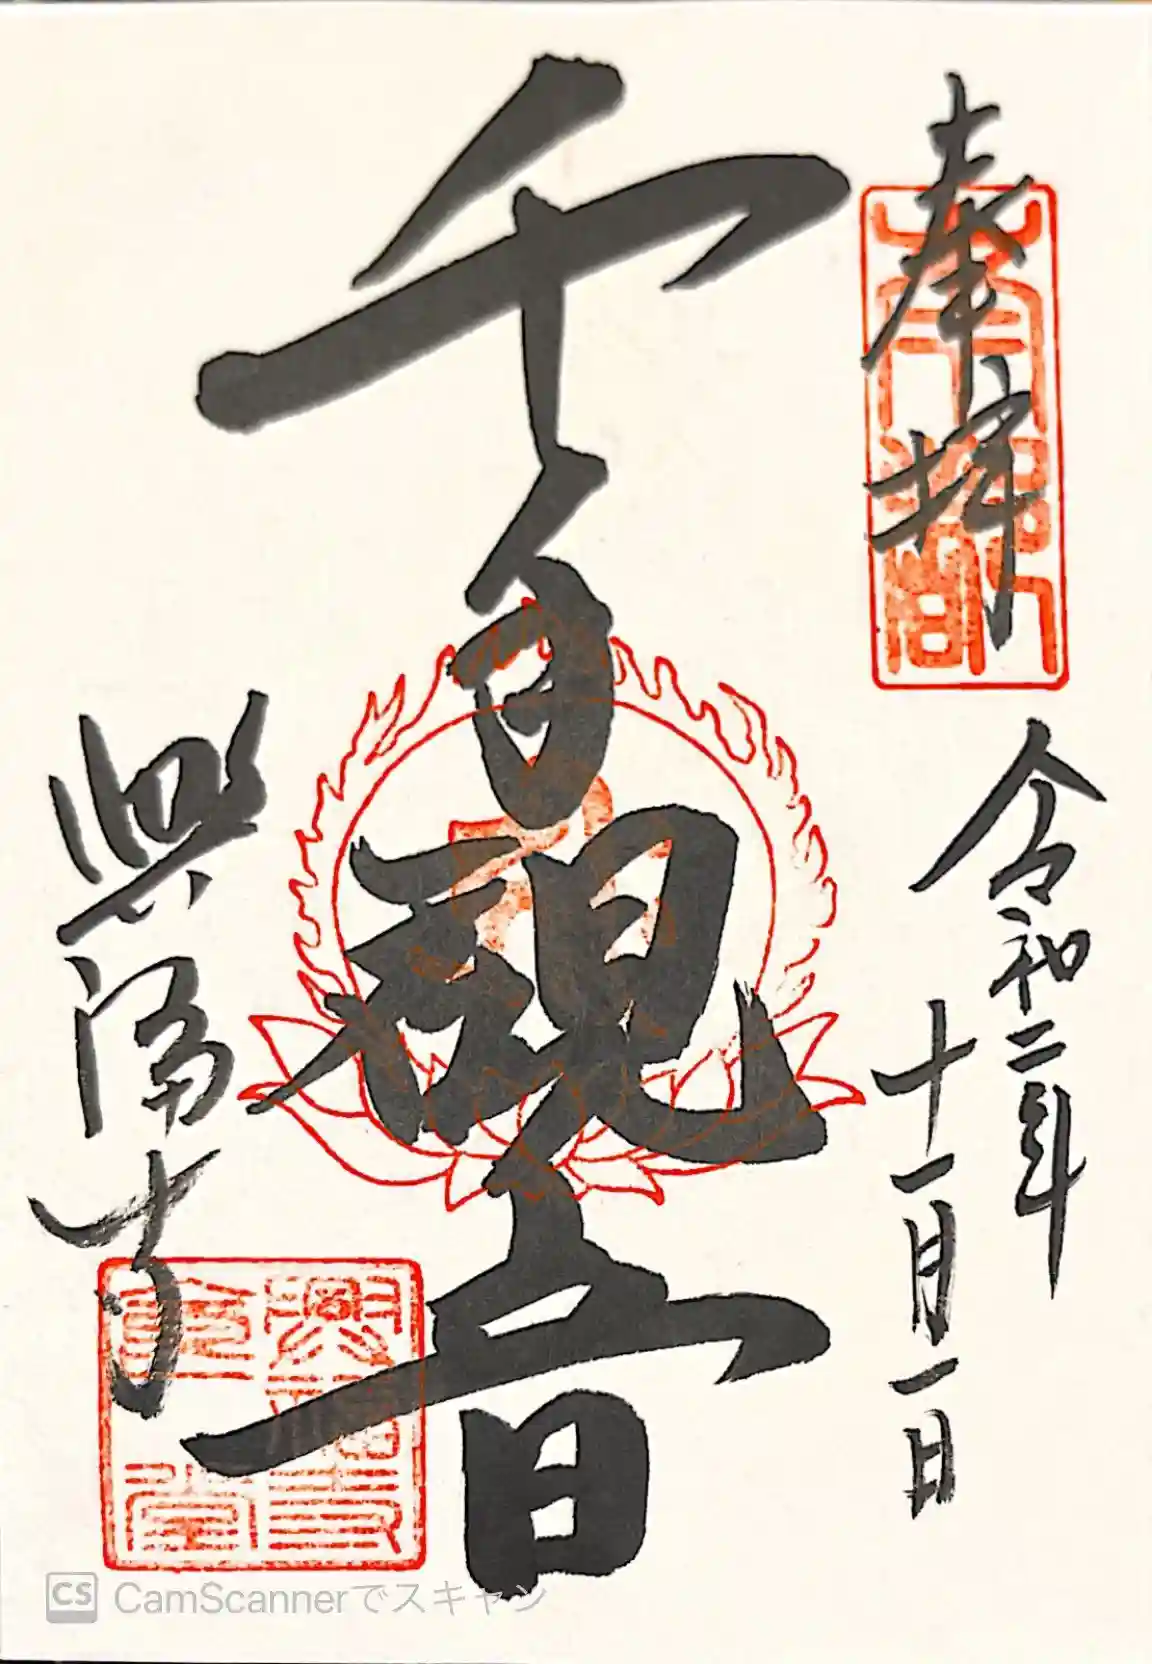 奉拝
令和二年
十一月一日
千手観音
興福寺
興福寺
食堂
CS CamScannerでスキャン